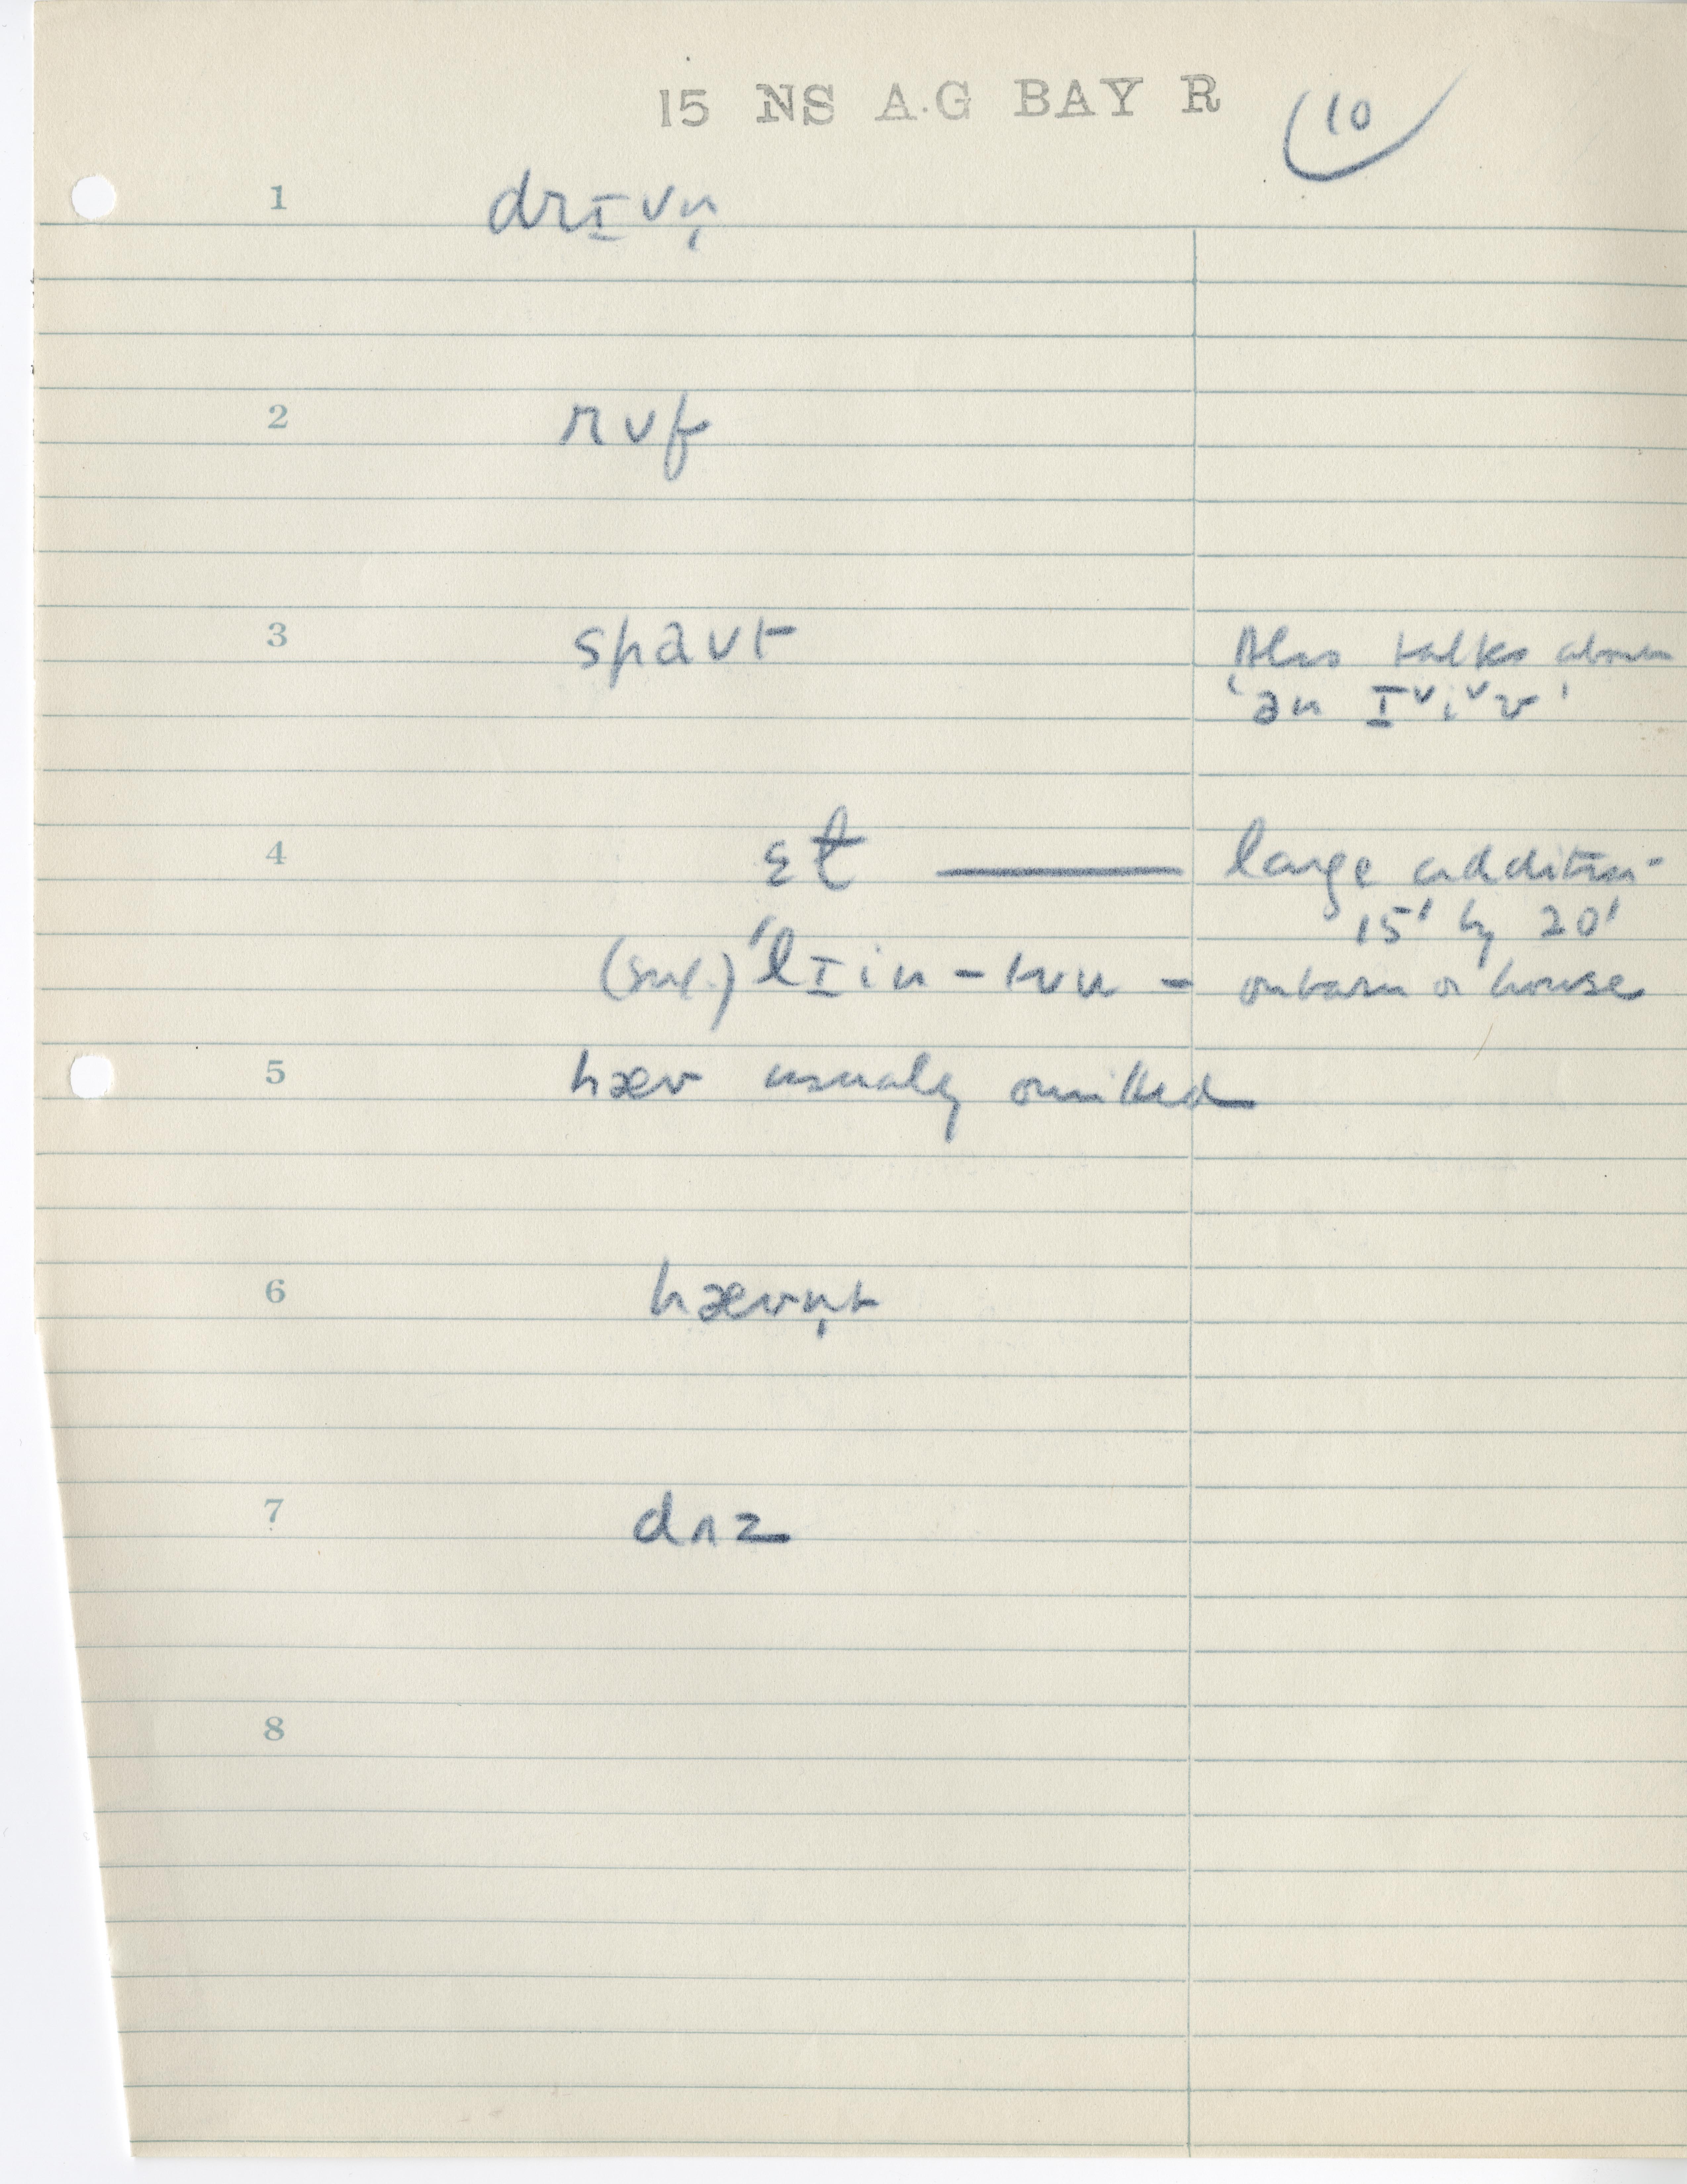 15 NS A.G BAY R 10
1 drɪvn̩
2 rʊf
3 spaʊt Also talks about
'ən ɪvɪvz'
4 ɛɫ — large addition -
15' by 20'
(sml.) 'lɪin-tʊu - on barn or house
5 hæv usually omitted
6 hævn̩t
7 dʌz
8